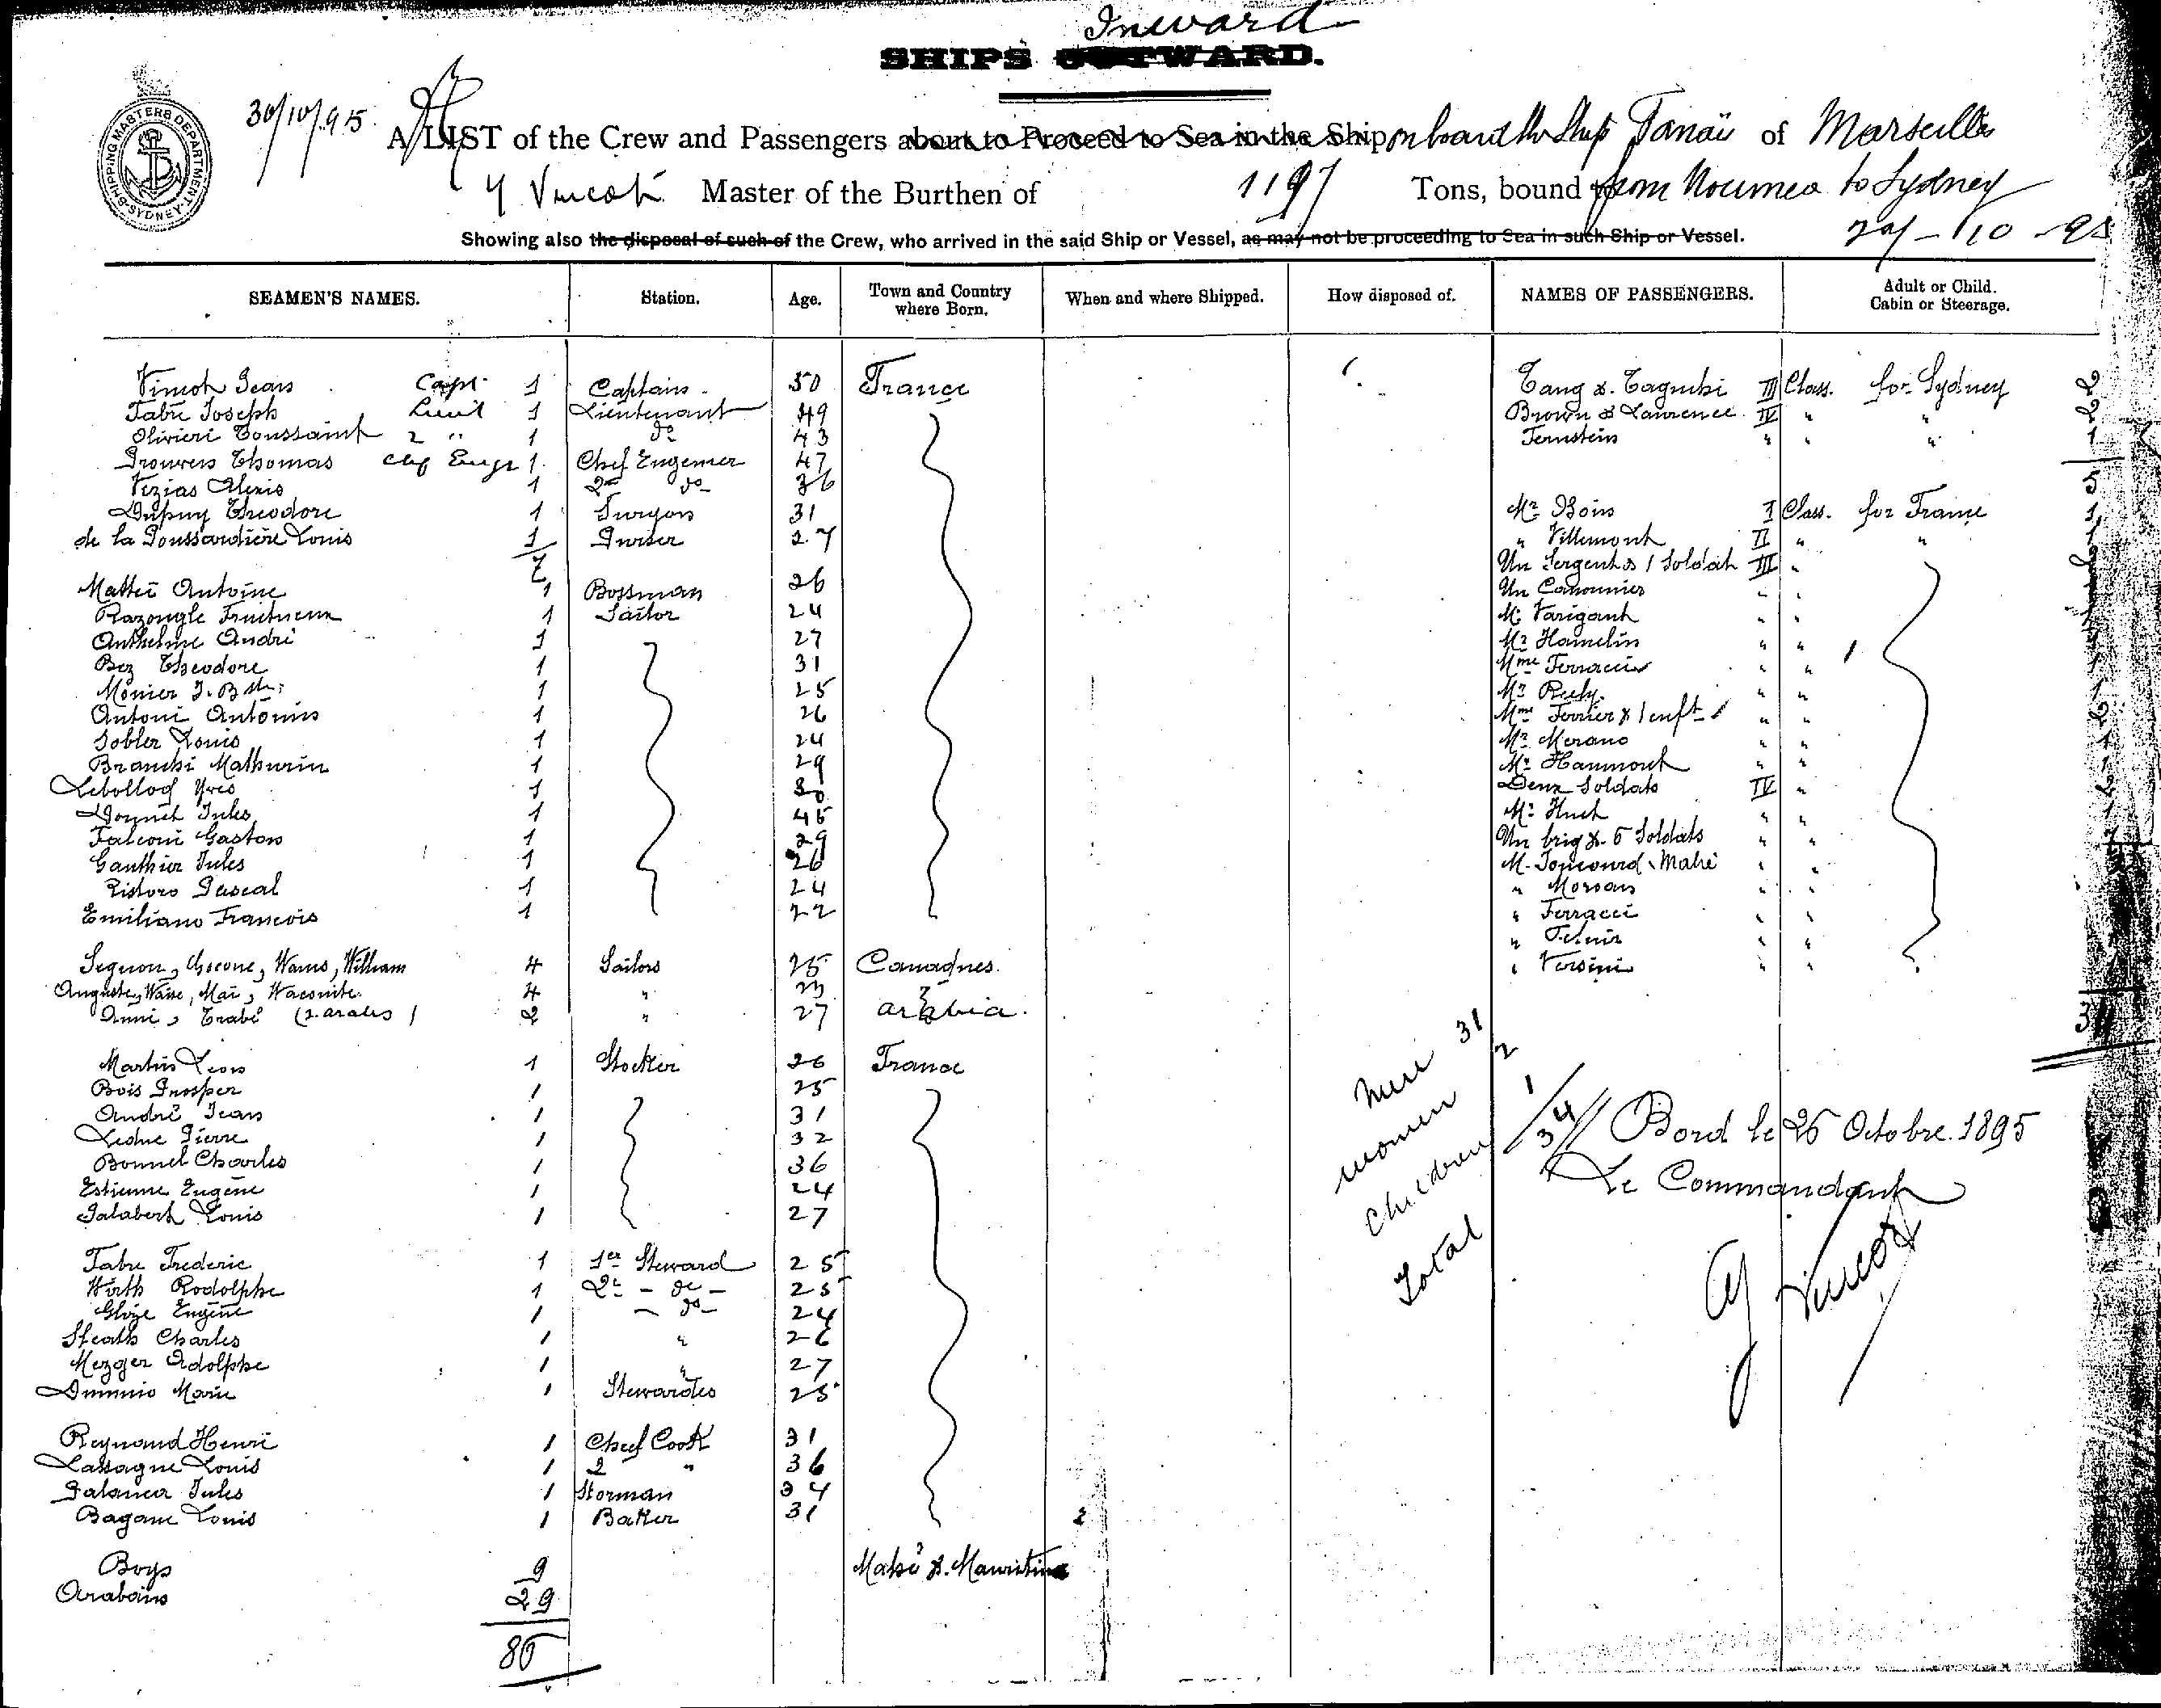 Inward
SHIPS OUTWARD.
SHIPPING MASTERS DEPARTMENT SYDNEY
30/10/95.
A LIST of the Crew and Passengers about to Proceed to Sea in the Ship on board the Ship Tanaïs of Marseilles
Y Vincot Master of the Burthen of 1197 Tons, bound from Noumea to Sydney
Showing also the disposal of such of the Crew, who arrived in the said Ship or Vessel, as may not be proceeding to Sea in such Ship or Vessel.
29-10-95
SEAMEN'S NAMES. Station. Age. Town and Country where Born. When and where Shipped. How disposed of. NAMES OF PASSENGERS. Adult or Child. Cabin or Steerage.
Vincot Jean Capt. 1 Captain 50 France
Fabre Joseph Lieut 1 Lieutenant 49
Olivieri Toussaint 2 " 1 do 43
Prouvers Thomas chef Engr 1. Chef Engenier 47
Vezias Alexis 1 2e do 36
Dupuy Theodore 1 Surgeon 31
de la Poussardière Louis 1 Purser 27
7
Mattei Antoine 1 Bossman 26
Razongle Fructueux 1 Sailor 24
Anthelme André 1 27
Bez Theodore 1 31
Monier J. B. 1 25
Antoni Antonin 1 26
Sobler Louis 1 24
Branchi Mathurin 1 29
Lebolloq Yves 1 30
Donnet Jules 1 45
Falconi Gaston 1 29
Gauthier Jules 1 26
Ristoro Pascal 1 24
Emiliano Francois 1 22
William 4 Sailors 25 Canaques.
Auguste, Mai, 4 " 23
(2 arabes) 2 " 27 arabia.
Martin Leon 1 Stocker 26 France
Bois Prosper 1 25
André Jean 1 31
Leduc Pierre 1 32
Bonnel Charles 1 36
Estienne Eugene 1 24
Salabert Louis 1 27
Fabre Frederic 1 1er Steward 25
Wirth Rodolphe 1 2e - do - 25
Eugene 1 - do - 24
Charles 1 " 26
Mezger Adolphe 1 " 27
Marie 1 Stewardes 25
Reynaud Henri 1 Chef Cook 31
Lassagne Louis 1 2 " 36
Palanca Jules 1 Storman 34
Bagarre Louis 1 Baker 31
Boys 9 Mahé & Mauritius
Arabains 29
86
Tang & Taguchi III Class. for Sydney 2
Brown & Laurence IV " " 2
Fernstein " " " 1
5
Mr Bois I Class. for France 1
" Villemont II " " 1
Un Sergent & 1 Soldat III "
Un Canonnier " "
M. Varigault " "
Mr Hamelin " " 1
Mme Ferracci " "
Mr Reely " "
Mme Ferrier & 1 enft " "
Mr Merano " "
Mr Hammond " "
Deux Soldats IV "
Mr Huet " "
Un brig & 5 Soldats " "
M. Mahé " "
" Morvan " "
" Ferracci " "
" "
" Versini " "
Men 31
women 2
children 1
Total 34
Bord le 26 Octobre 1895
Le Commandant
Y Vincot